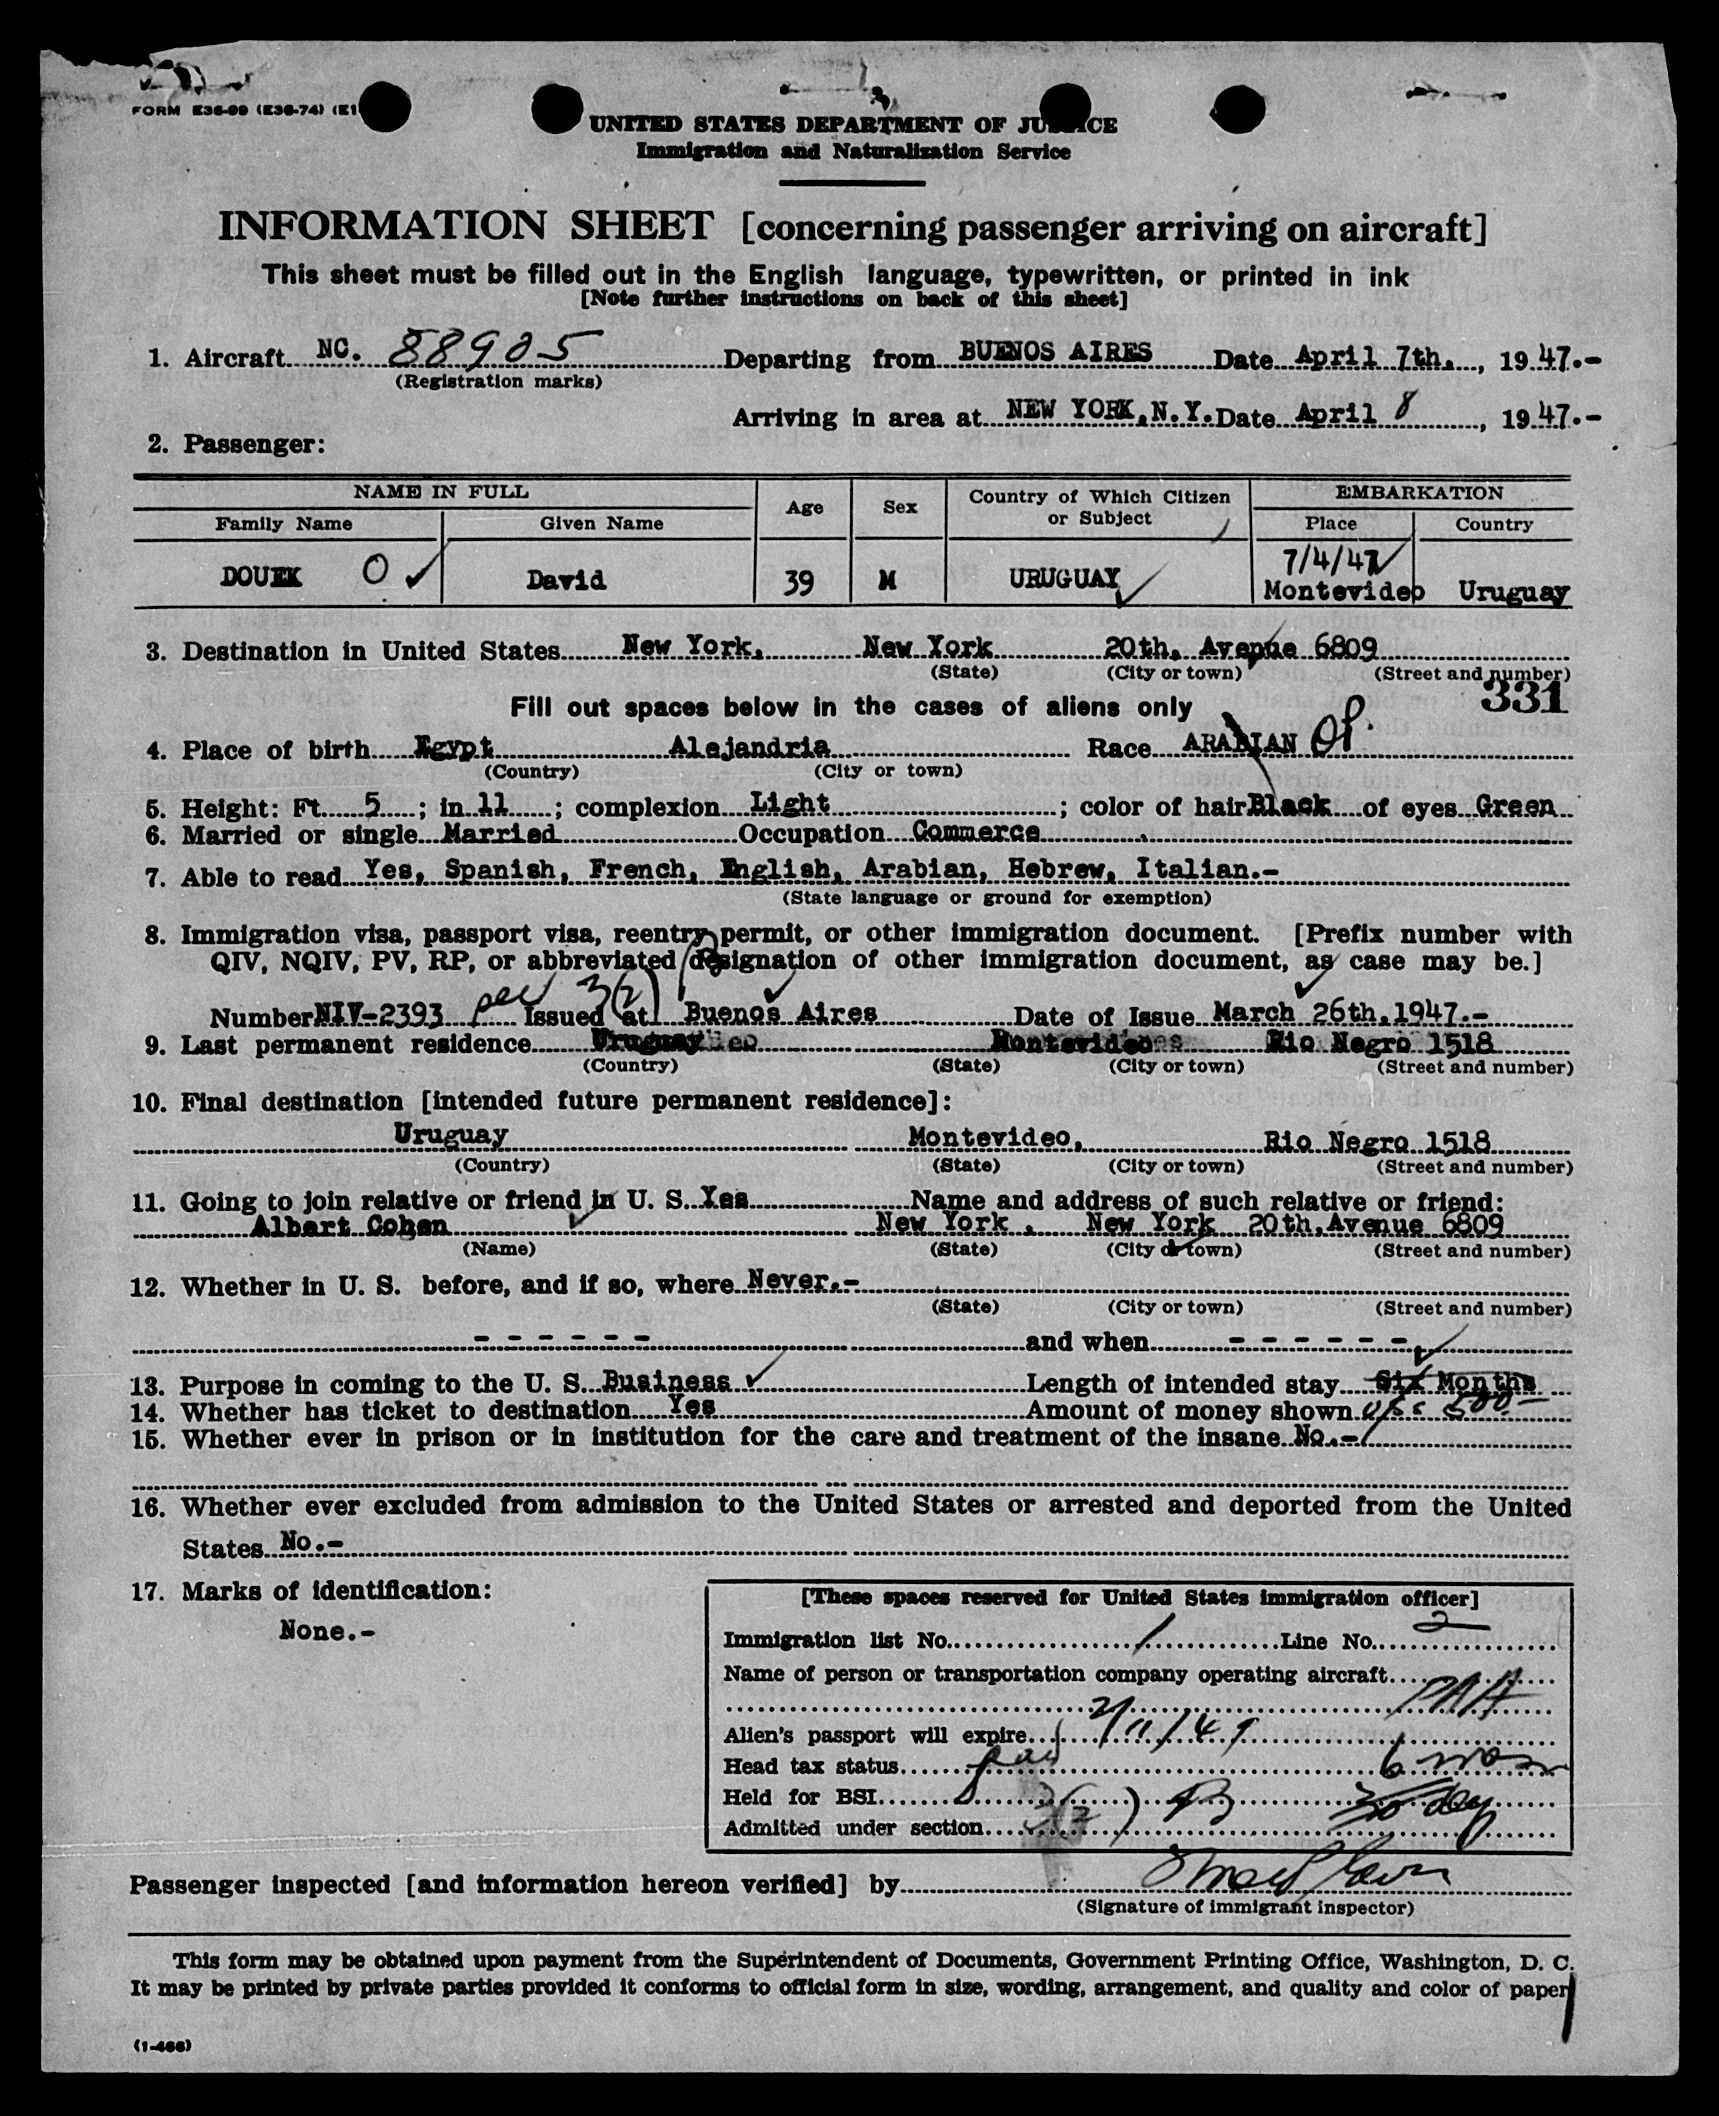 FORM E36-99 (E36-74) (E1
UNITED STATES DEPARTMENT OF JUSTICE
Immigration and Naturalization Service
INFORMATION SHEET [concerning passenger arriving on aircraft]
This sheet must be filled out in the English language, typewritten, or printed in ink
[Note further instructions on back of this sheet]
1. Aircraft NC. 88905 Departing from BUENOS AIRES Date April 7th., 1947.-
(Registration marks)
Arriving in area at NEW YORK, N.Y. Date April 8, 1947.-
2. Passenger:
NAME IN FULL Age Sex Country of Which Citizen or Subject EMBARKATION
Family Name Given Name Place Country
7/4/47
DOUEK O David 39 M URUGUAY Montevideo Uruguay
3. Destination in United States New York, New York 20th, Avenue 6809
(State) (City or town) (Street and number)
Fill out spaces below in the cases of aliens only 331
4. Place of birth Egypt Alejandria Race ARABIAN
(Country) (City or town)
5. Height: Ft. 5; in. 11; complexion Light; color of hair Black of eyes Green
6. Married or single Married Occupation Commerce
7. Able to read Yes, Spanish, French, English, Arabian, Hebrew, Italian.-
(State language or ground for exemption)
8. Immigration visa, passport visa, reentry permit, or other immigration document. [Prefix number with
QIV, NQIV, PV, RP, or abbreviated designation of other immigration document, as case may be.]
3(2)
Number NIV-2393 Issued at Buenos Aires Date of Issue March 26th, 1947.-
9. Last permanent residence Uruguay Montevideo Rio Negro 1518
(Country) (State) (City or town) (Street and number)
10. Final destination [intended future permanent residence]:
Uruguay Montevideo, Rio Negro 1518
(Country) (State) (City or town) (Street and number)
11. Going to join relative or friend in U. S. Yes Name and address of such relative or friend:
Albert Cohen New York, New York 20th, Avenue 6809
(Name) (State) (City or town) (Street and number)
12. Whether in U. S. before, and if so, where Never.-
(State) (City or town) (Street and number)
- - - - - - and when - - - - - -
13. Purpose in coming to the U. S. Business Length of intended stay Six Months
14. Whether has ticket to destination Yes Amount of money shown 500-
15. Whether ever in prison or in institution for the care and treatment of the insane No.-
16. Whether ever excluded from admission to the United States or arrested and deported from the United
States No.-
17. Marks of identification:
None.-
[These spaces reserved for United States immigration officer]
Immigration list No. 1 Line No. 2
Name of person or transportation company operating aircraft
PAA
Alien's passport will expire 2/11/49
Head tax status 6 mos
Held for BSI 30 day
Admitted under section 3(2) B
Passenger inspected [and information hereon verified] by
(Signature of immigrant inspector)
This form may be obtained upon payment from the Superintendent of Documents, Government Printing Office, Washington, D. C.
It may be printed by private parties provided it conforms to official form in size, wording, arrangement, and quality and color of paper
(1-466)